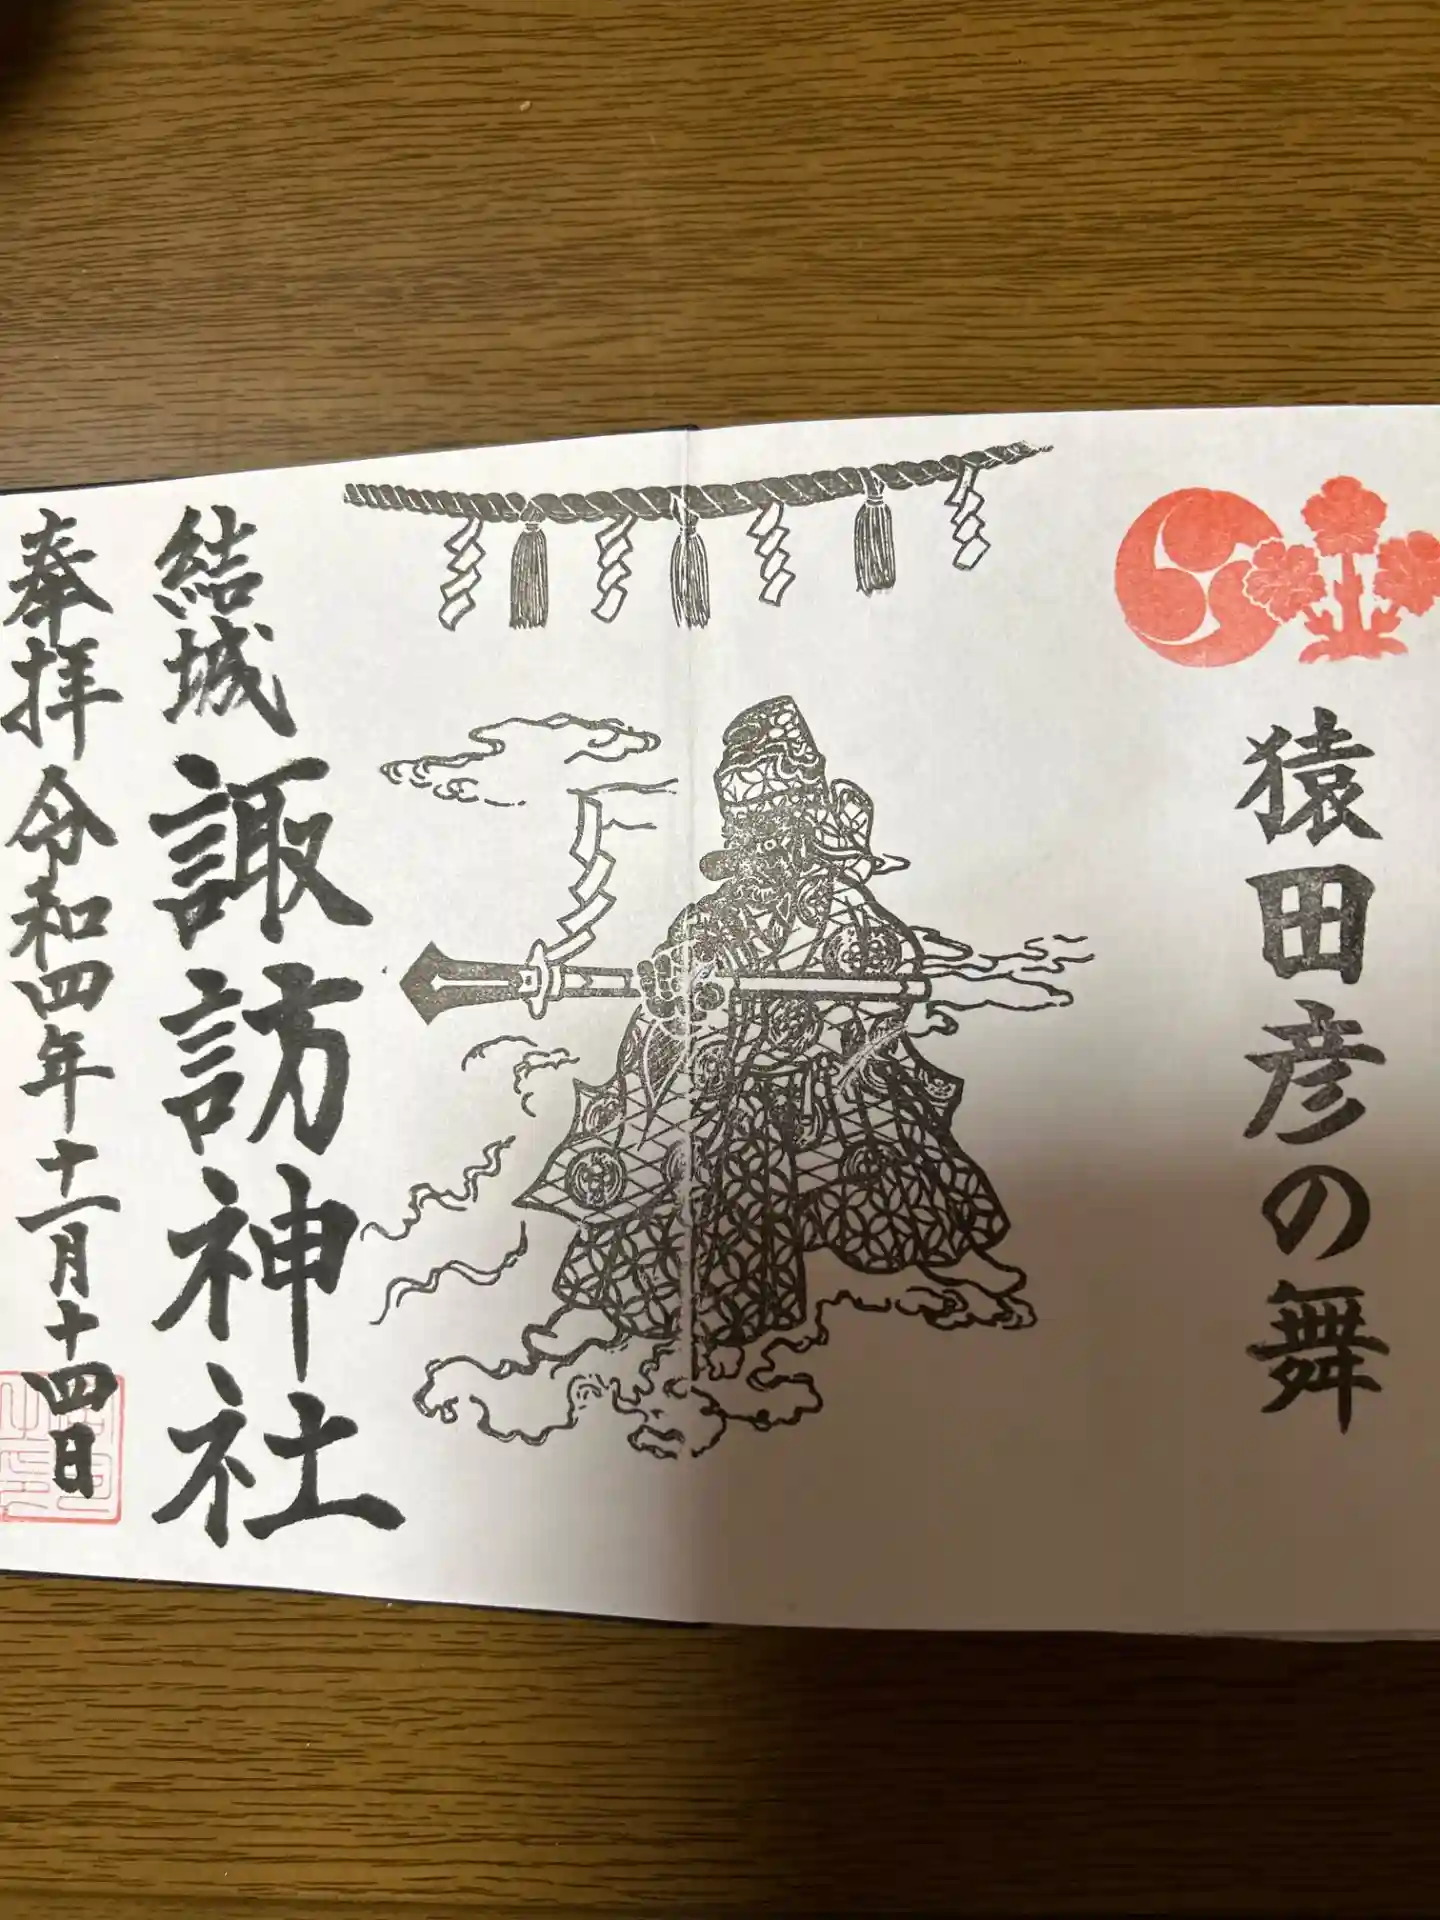 猿田彦の舞
結城諏訪神社
奉拝令和四年十一月十四日